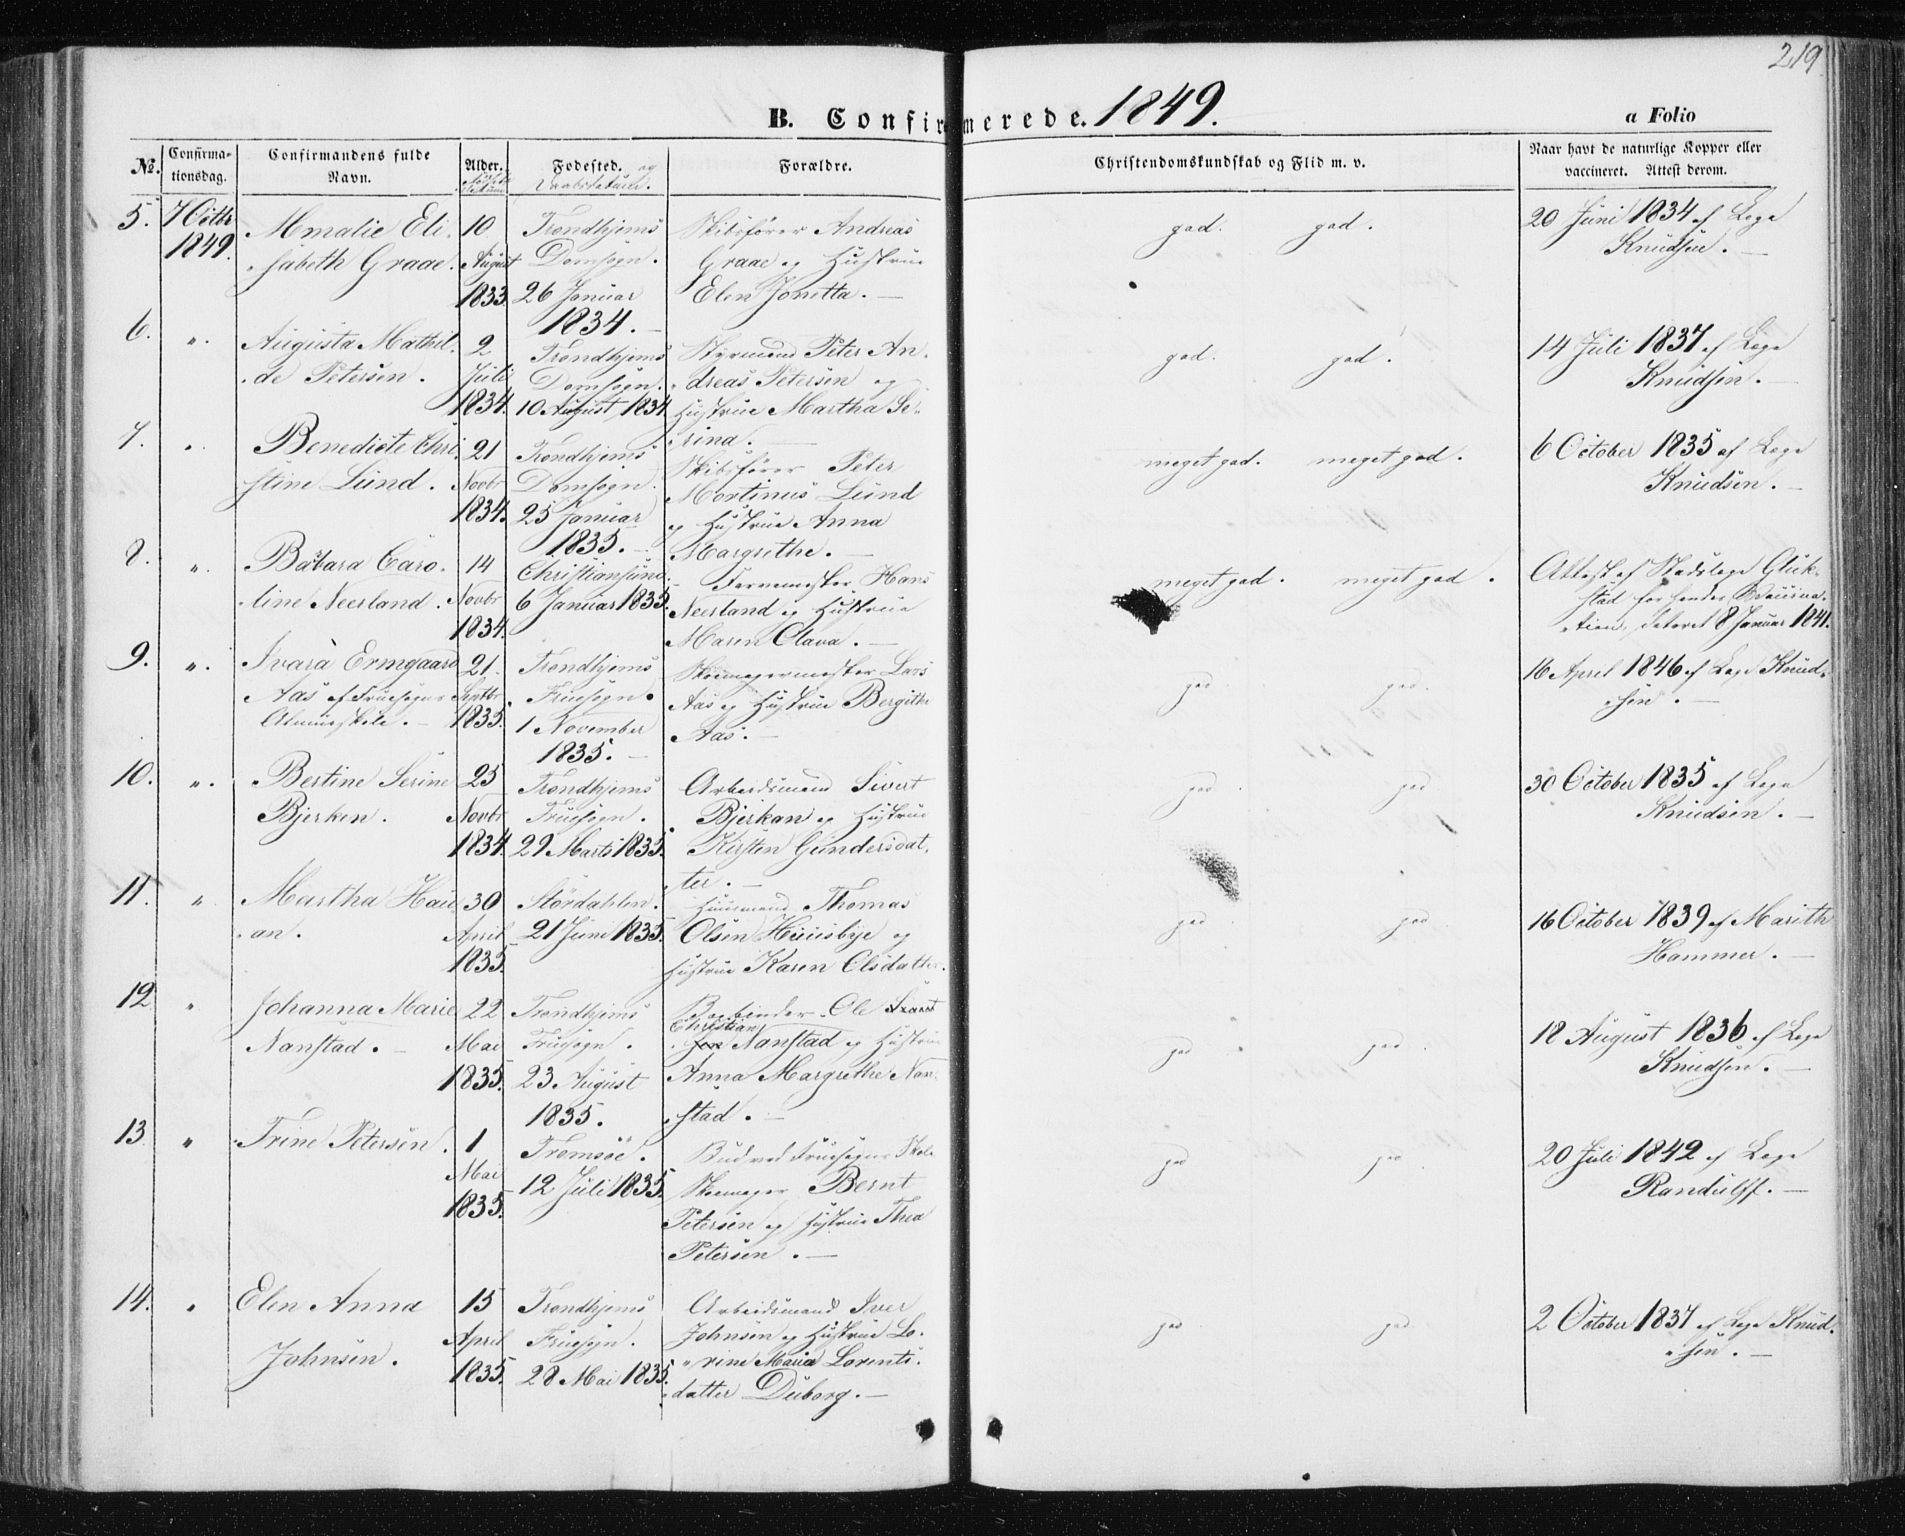 219
B. Confirmerede. 1849.
a Folio
No.
Confirma-
tionsdag.
Confirmandens fulde
Navn.
Alder.
Fødested. og
Daabsdatum.
Forældre.
Christendomskundskab og Flid m. v.
Naar havt de naturlige Kopper eller
vaccineret. Attest derom.
5.
7 Octbr
1849.
Amalie Eli-
sabeth Graae.
10
August
1833.
Trondhjems
Domsogn.
26 Januar
1834.
Skibsfører Andreas
Graae og Hustrue
Elen Jonetta.
god. god.
20 Juni 1834 af Læge
Knudsen.
6.
".
Augusta Mathil-
de Petersen.
2
Juli
1834.
Trondhjems
Domsogn.
10 August 1834.
Styrmand Peter An-
dreas Petersen og
Hustrue Martha Se-
rina.
god. god.
14 Juli 1837 af Læge
Knudsen.
7.
".
Benedicte Chri-
stine Lund.
21
Novbr
1834.
Trondhjems
Domsogn.
25 Januar
1835.
Skibsfører Peter
Mortinus Lund
og Hustrue Anna
Margrethe.
meget god. meget god.
6 October 1835 af Læge
Knudsen.
8.
".
Barbara Caro-
line Neerland.
14
Novbr
1834.
Christiansund.
6 Januar 1835.
Farvemester Hans
Neerland og Hustrue
Maren Olava.
meget god. meget god.
Attest af Stadslæge Glük-
stad for hendes Vaccina-
tion, dateret 8 Januar 1841.
9.
".
Ivara Ermgaard
Aas af Fruesogns
Almueskole.
21
Septbr
1835.
Trondhjems
Fruesogn.
1 November
1835.
Skoemagermester Lars
Aas og Hustrue Bergithe
Aas.
god god
16 April 1846 af Læge Knud-
sen.
10.
".
Bertine Serine
Bjerken.
25
Novbr
1834.
Trondhjems
Fruesogn.
29 Marts 1835.
Arbeidsmand Sivert
Bjerkan og Hustrue
Kirsten Gundersdat-
ter.
god god
30 October 1835 af Læge
Knudsen.
11.
".
Martha Hau-
an.
30
April
1835.
Størdahlen.
21 Juni 1835.
Huusmand Thomas
Olsen Huusbye og
Hustrue Karen Olsdatter.
god god
16 October 1839 af Marith
Hammer.
12
"
Johanna Marie
Nanstad.
22
Mai
1835.
Trondhjems
Fruesogn.
23 August
1835.
Bogbinder Ole
Christian
Nanstad og Hustrue
Anna Margrethe Nan-
stad.
god god
18 August 1836 af Læge
Knudsen.
13.
"
Trine Petersen.
1
Mai
1835.
Tromsöe.
12 Juli 1835.
Bud ved Fruesogns Skole
Skomager Bernt
Petersen og Hustrue Thea
Petersen.
god god
20 Juli 1842 af Læge
Randulff.
14.
"
Elen Anna
Johnsen.
15
April
1835.
Trondhjems
Fruesogn.
28 Mai 1835.
Arbeidsmand Iver
Johnsen og Hustrue Lo-
rine Maria Lorents-
datter Duborg.
god god
2 October 1837 af Læge Knud-
sen.